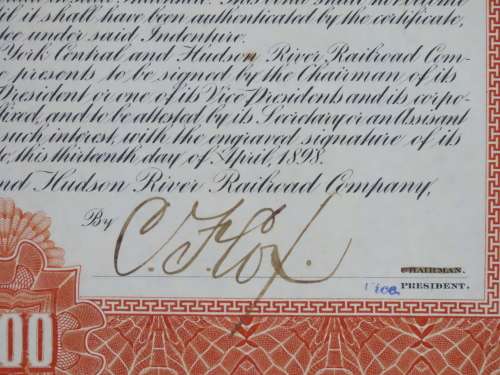 til it shall have been authenticated by the certificate,
tee under said Indenture.
York Central and Hudson River Railroad Com-
presents to be signed by the Chairman of its
President or one of its Vice-Presidents and its corpo-
fixed, and to be attested by its Secretary or an Assistant
such interest, with the engraved signature of its
this thirteenth day of April, 1898.
and Hudson River Railroad Company,
By C. F. Cox.
CHAIRMAN.
Vice PRESIDENT.
00